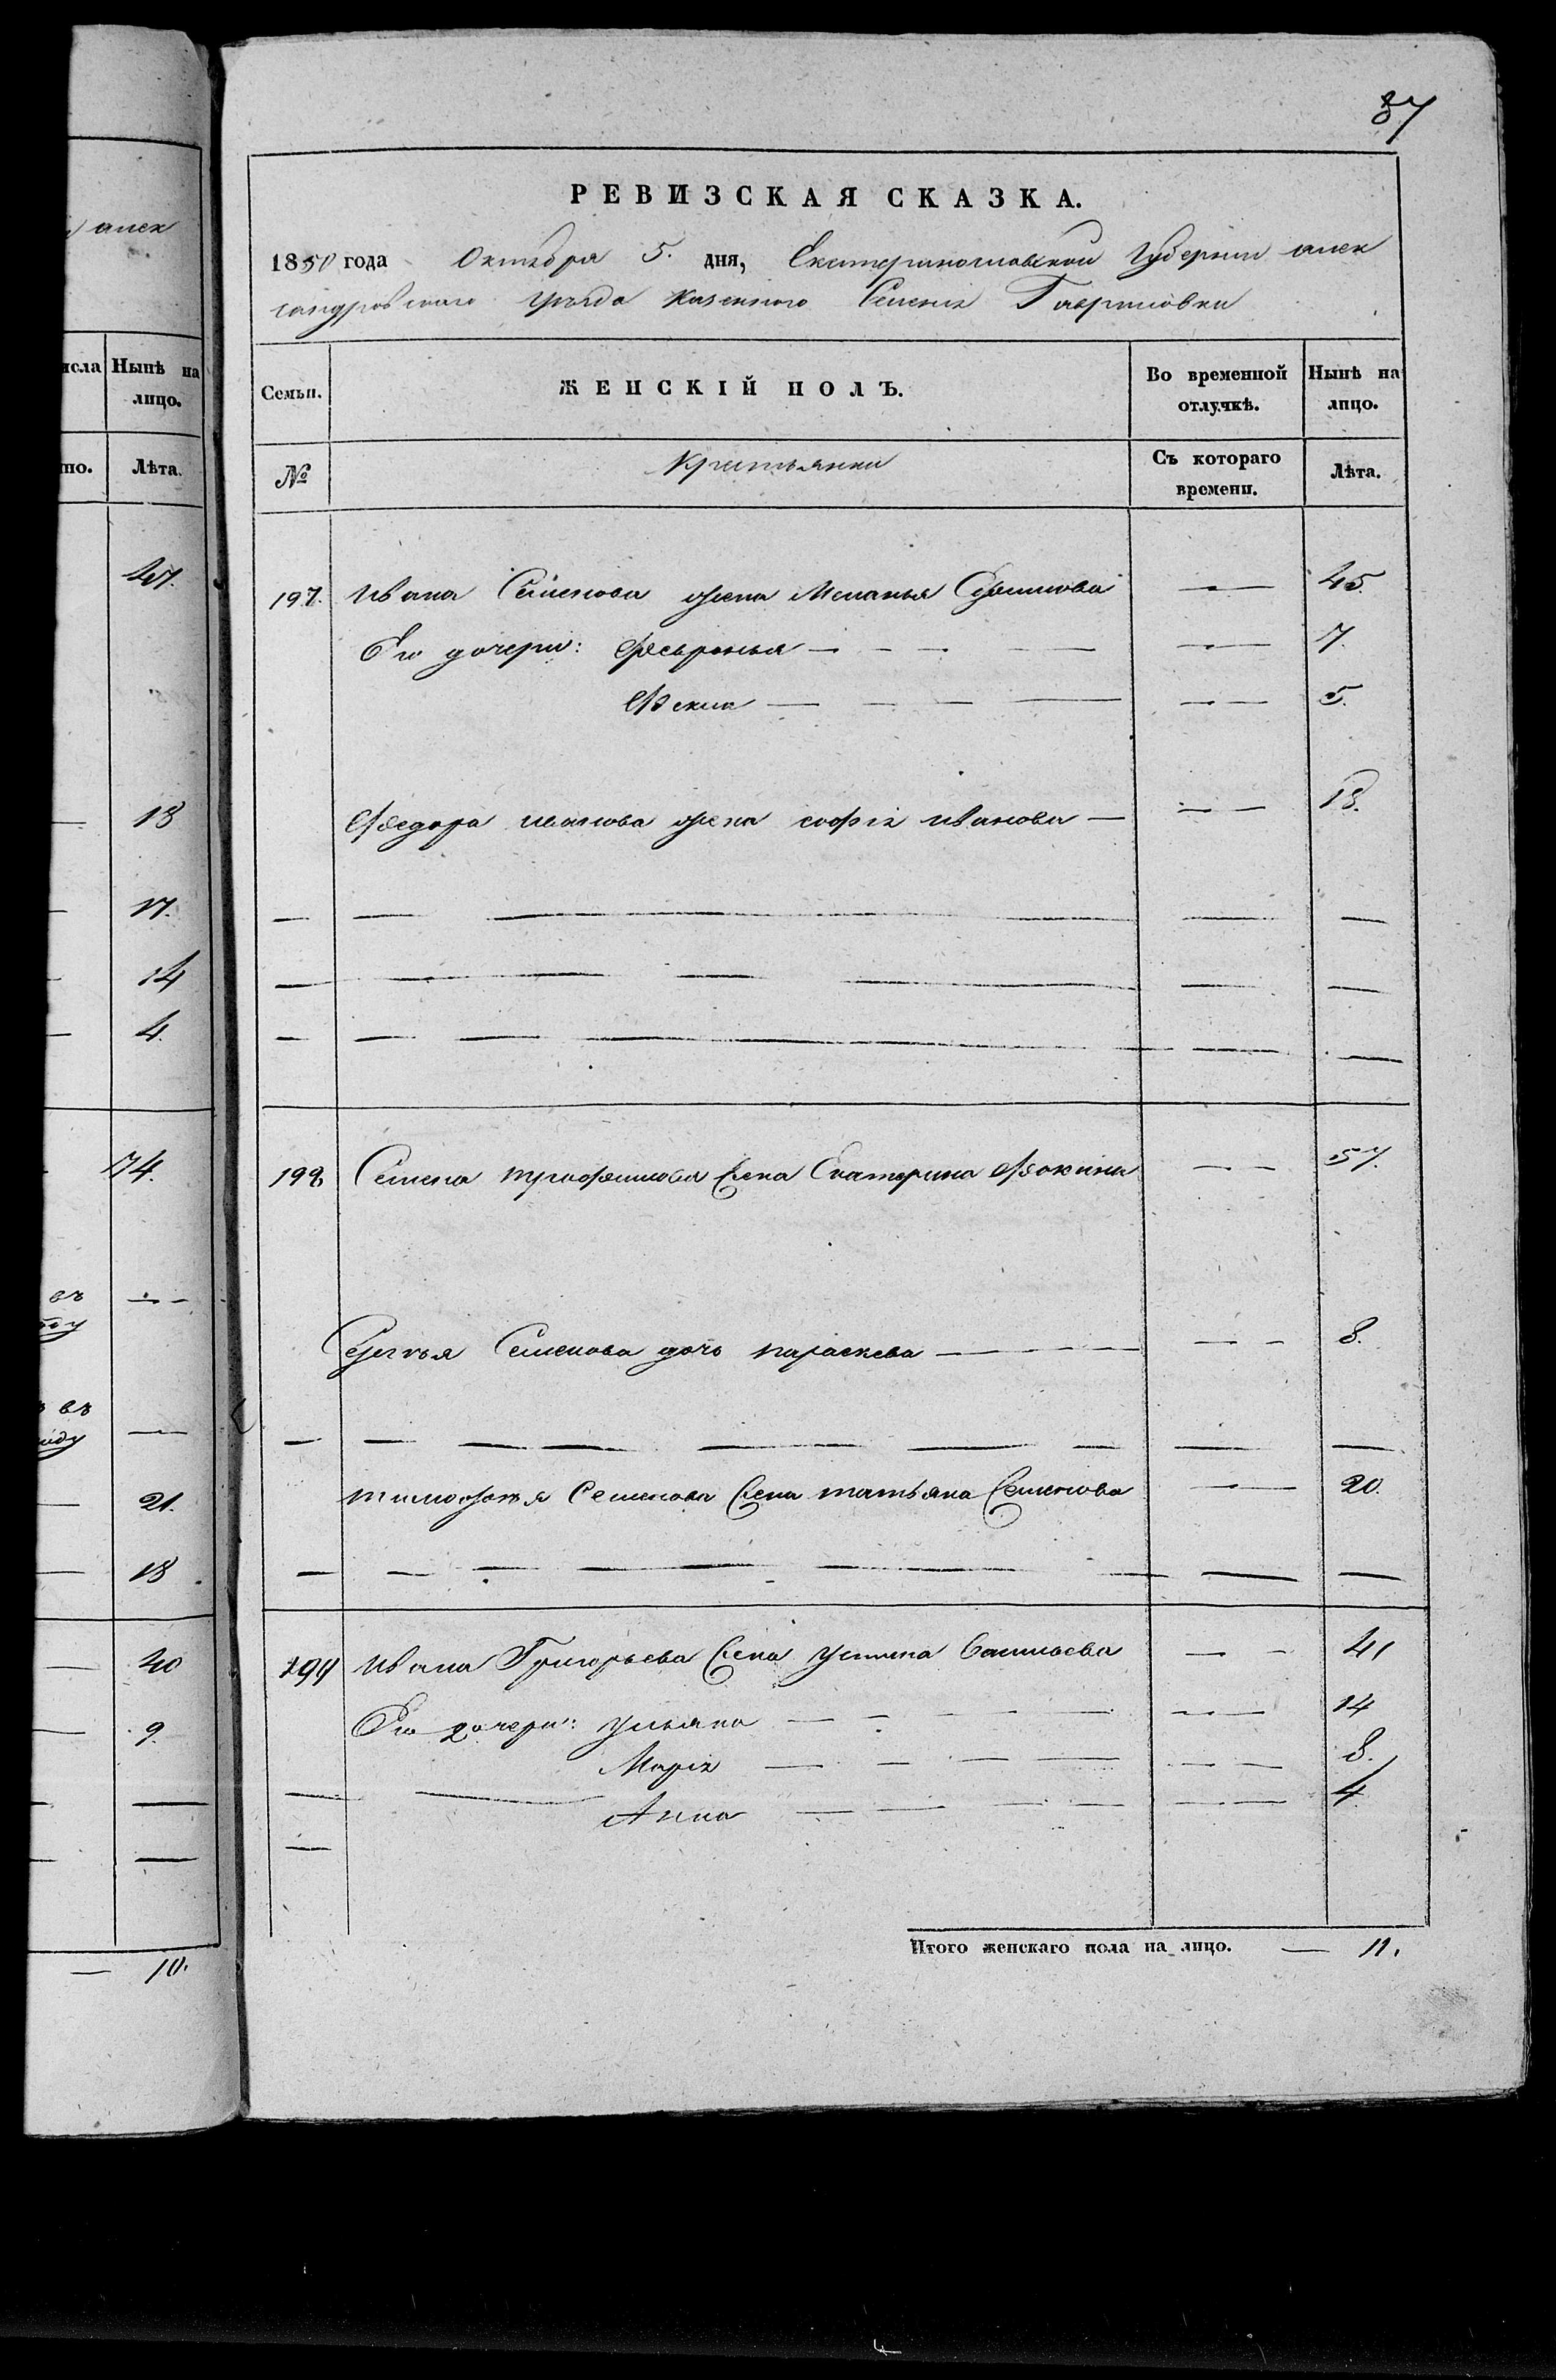 алек
исла Нынѣ на
лицо.
но. Лѣта.
47.
18
17.
14
4.
74.
въ
въ
21.
18
40
9.
10.
37
РЕВИЗСКАЯ СКАЗКА.
1850 года Октября 5. дня, Екатеринославской Губернии алек
сандровскаго уѣзда казенного Селенія Гавриловки
Семьи. ЖЕНСКІЙ ПОЛЪ. Во временной отлучкѣ. Нынѣ на лицо.
№ Крестьянки Съ котораго времени. Лѣта.
197. Ивана Семенова жена Меланья 45.
Его дочери: Февронья 7.
Фекла 5.
Федора иванова жена софія иванова 18.
198 Семена трофимова жена Екатерина Фокина 57.
Сергѣя Семенова дочь параскева 8.
тимофѣя Семенова жена татьяна Семенова 20.
199 Ивана Григорьева жена устина Васильева 41
Его дочери: ульяна 14
Марія 8.
Анна 4
Итого женскаго пола на лицо. — 11.